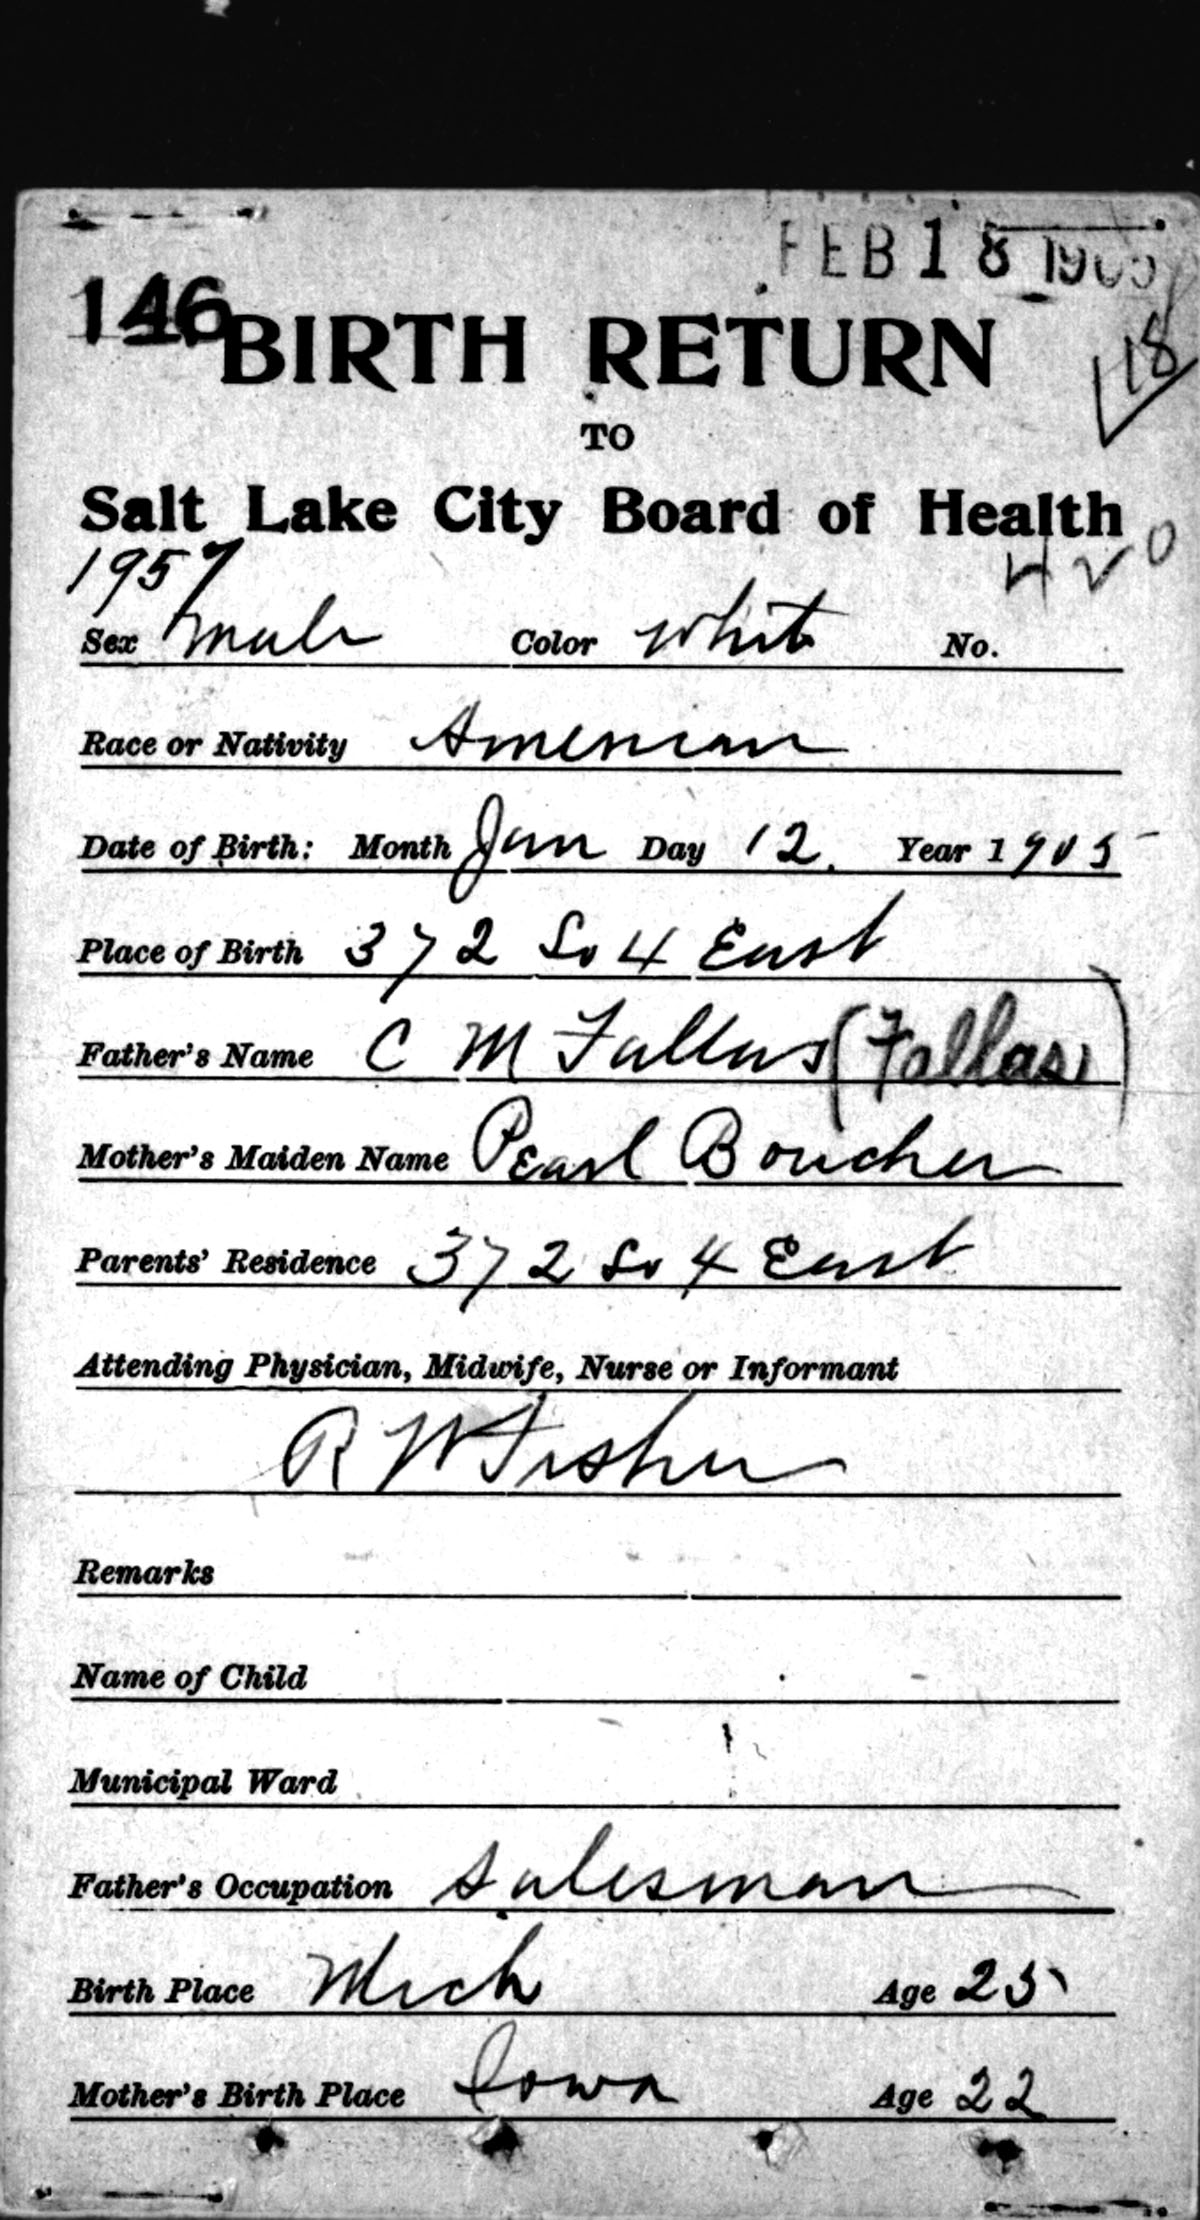 FEB 18 1905
146
BIRTH RETURN
18
TO
Salt Lake City Board of Health
1957
420
Sex Male Color White No.
Race or Nativity American
Date of Birth: Month Jan Day 12. Year 1905
Place of Birth 372 So 4 East
Father's Name C M Fallas (Fallas)
Mother's Maiden Name Pearl Boucher
Parents' Residence 372 So 4 East
Attending Physician, Midwife, Nurse or Informant
R W Fisher
Remarks
Name of Child
Municipal Ward
Father's Occupation Salesman
Birth Place Mich Age 25
Mother's Birth Place Iowa Age 22